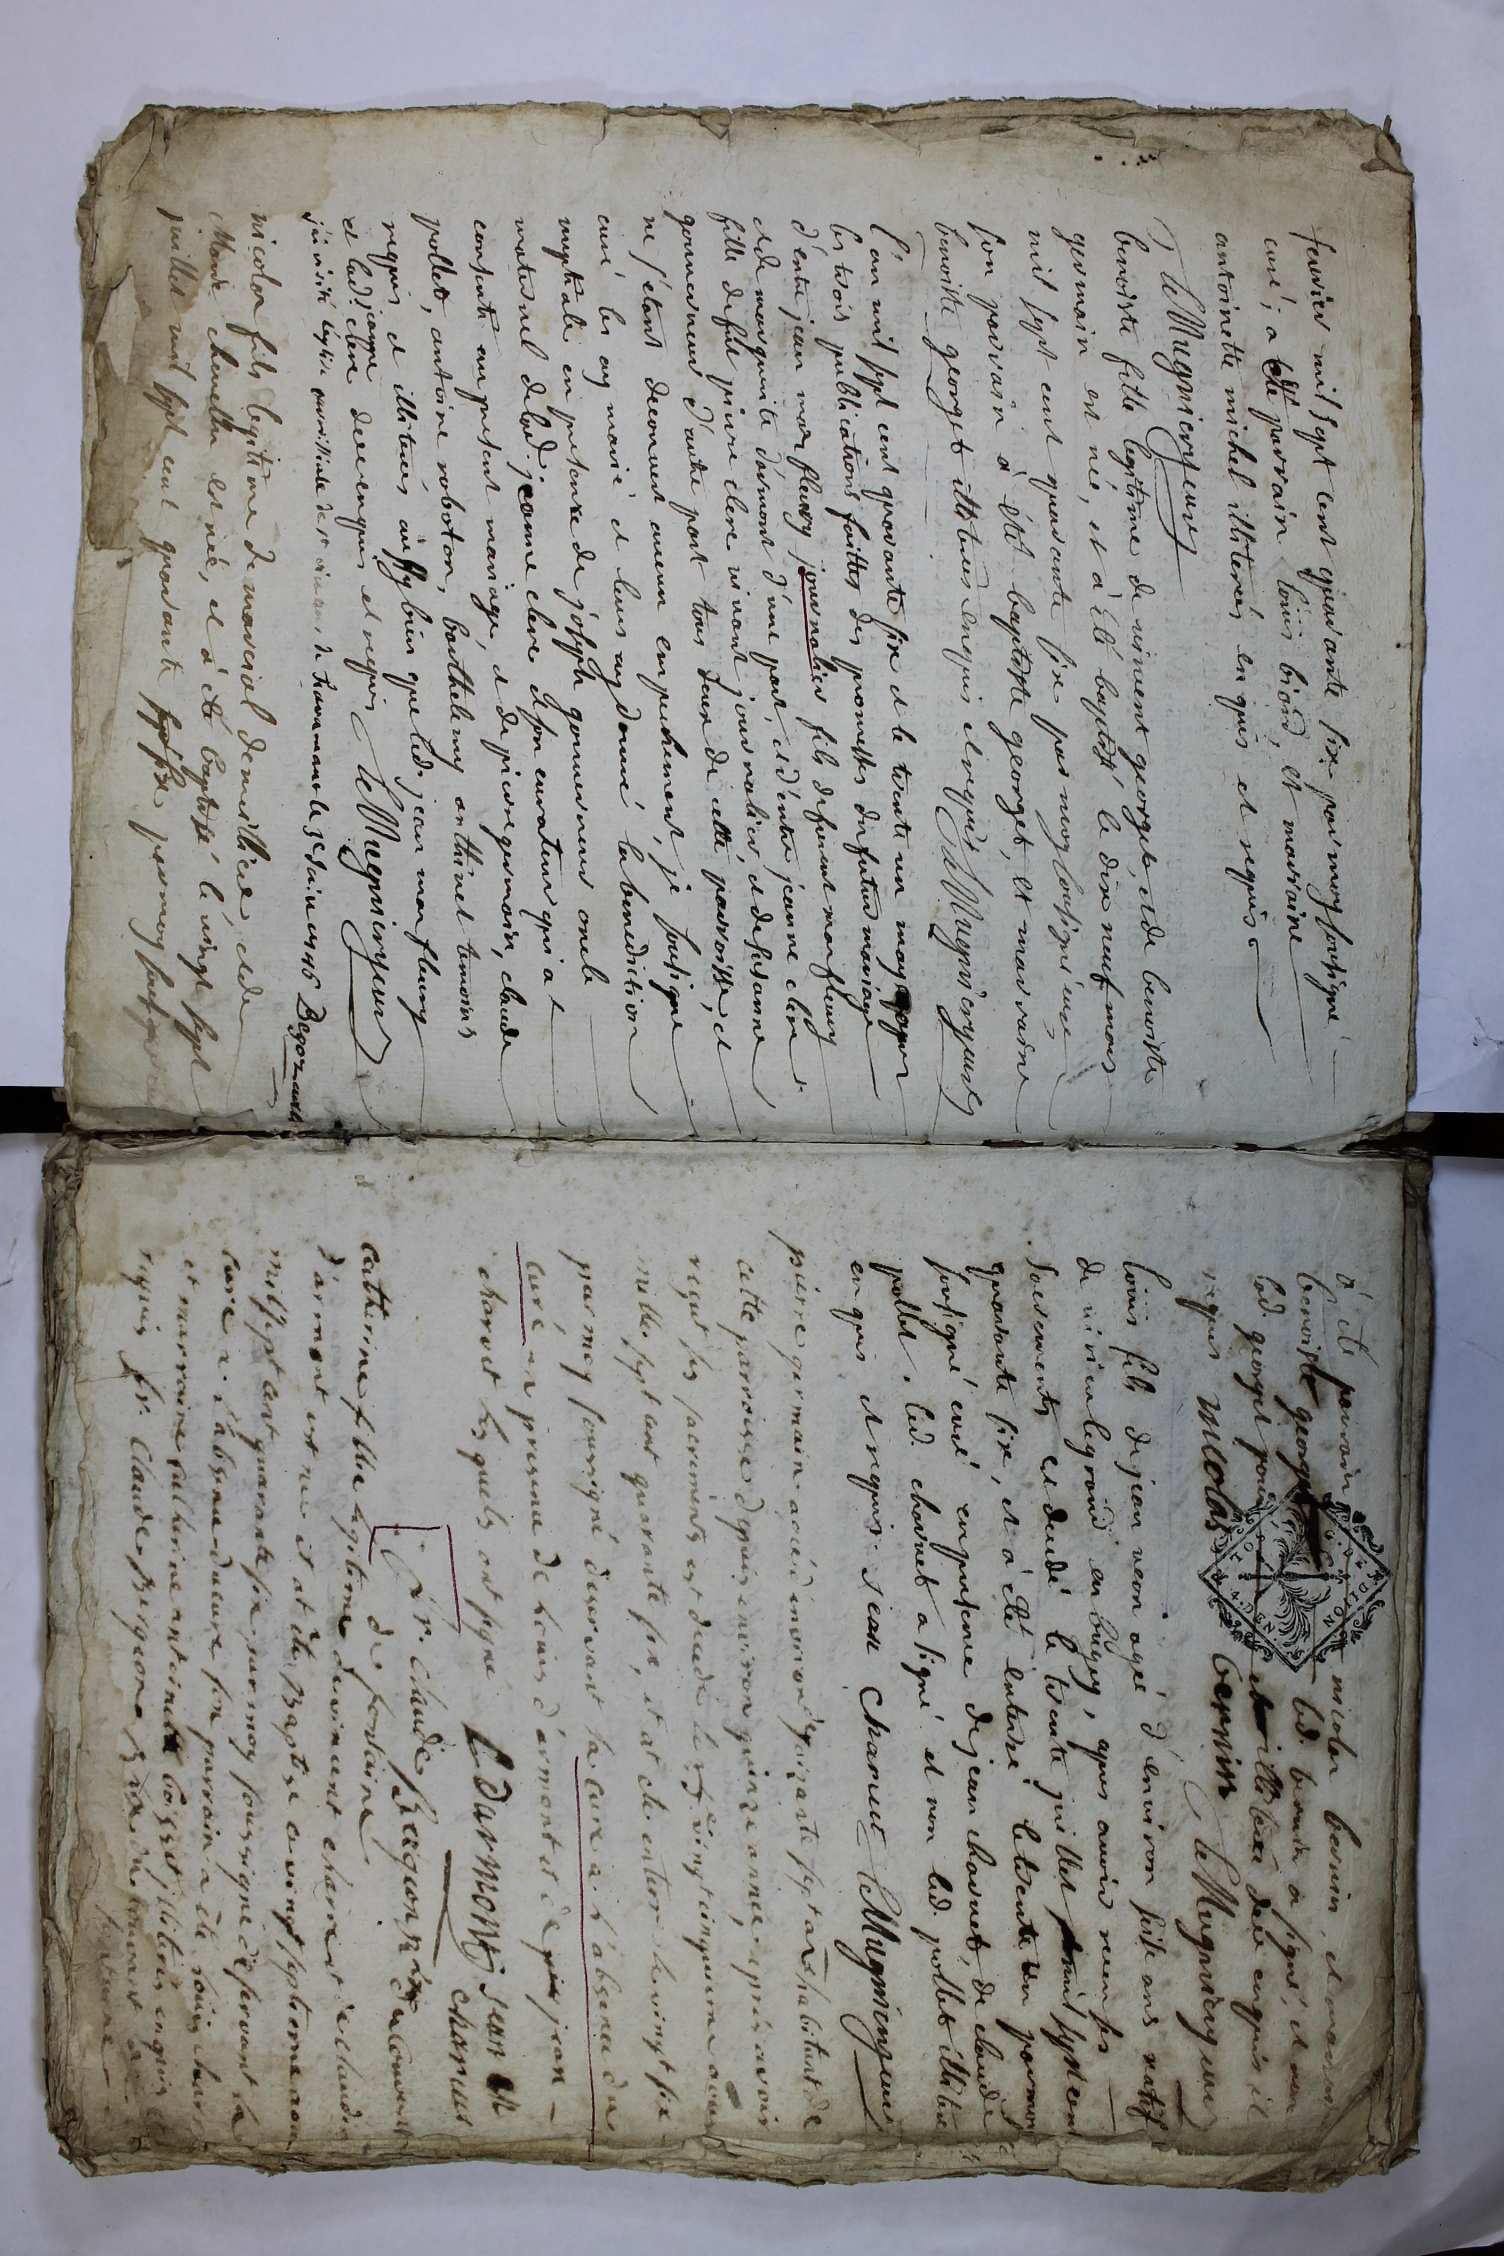 fevrier mil sept cent quarante six par moy soussigné
curé, a été parrain louis biord, et marraine
antoinette michel illiterés enquis et requis
Le Mugnieryeur
benoiste fille legitime de vincent georget, et de benoiste
germain est née, et a été baptisée le dix neuf mars
mil sept cent quarante six par moy soussigné curé
son parrain a été baptiste georget, et marraine
benoiste georget illiterés enquis et requis Le Mugnieryeur
l'an mil sept cent quarante six et le trente un may apres
les trois publications faittes des promesses du futur mariage
d'entre jean monfleury journalier fils de feu monfleury
et de marguerite darmont d'une part, et d'entre jeanne clere
fille de feu pierre clere vivant journalier, et de susanne
gouverneur d'autre part tous deux de cette parroisse, et
ne s'étant decouvert aucun empechement, je soussigné
curé les ay marié et leur ay donné la benediction
nuptiale en presence de joseph gouverneur oncle
maternel de lad. jeanne clere et son curateur qui a
consenti au present mariage, et de pierre germain, claude
pollet, antoine roboton, barthelemy anthinel temoins
requis et illiterés aussy bien que led. jean monfleury
et lad. jeanne clere de ce enquis et requis Le Mugnieryeur
j'ai visité leglise parroissiale de st le 3e juin 1746 Begoz curé
nicolas fils legitime de marcial demilliere et de
Marie chenellen est né, et a été baptisé le vingt sept
juillet mil sept cent quarante six par moy soussigné
a été parrain nicolas bernin, et marraine
benoiste georget led. bernin a signé, et non
lad. georget pour etre illiterée de ce enquis et
requis nicolas bernin Le Mugnieryeur
G. DE DIJON
louis fils de jean veon agé d'environ seise ans natif
de virieu legrand en bugey, apres avoir receu ses
sacrements est decedé le trente juillet mil sept cent
quarante six, et a été enterré le trente un par moy
soussigné curé en presence de jean charvet, de claude
pollet, led. charvet a signé et non led. pollet illiteré
enquis et requis jean charuet Le Mugnieryeur
pierre germain agé d'environ soixante sept ans habitant de
cette parroisse depuis environ quinze années, apres avoir
reçut ses sacrements est decedé le vingt cinquieme aout
mille sept cent quarante six, et at eté enterré le vingt six
par moy soussigné desservant la cure a l'absence du
curé, en presence de louis d'armont et de jean
charvet lesquels ont signé L darmont jean
charuet
fr. claude Bergeon du couvent
de fontaine
catherine fille legitime de vincent charvet et claudine
d'armont est nee et at eté Baptisé au vingt septieme aout
mil sept cent quarante six par moy soussigné desservant la
cure a l'absence du cure son parrain a eté louis charvet
et marraine catherine antoinette illiterés enquis et
requis fr. Claude Bergeon